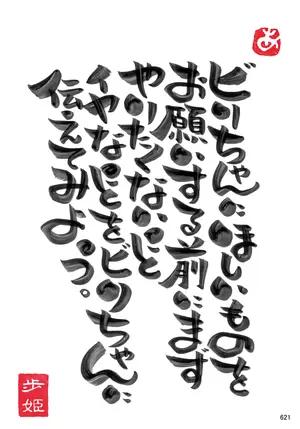 あ
ビリちゃんにほしいものを
お願いする前にまず
やりたくないこと
イヤなことをビリちゃんに
伝えてみよっつ。
歩姫
621